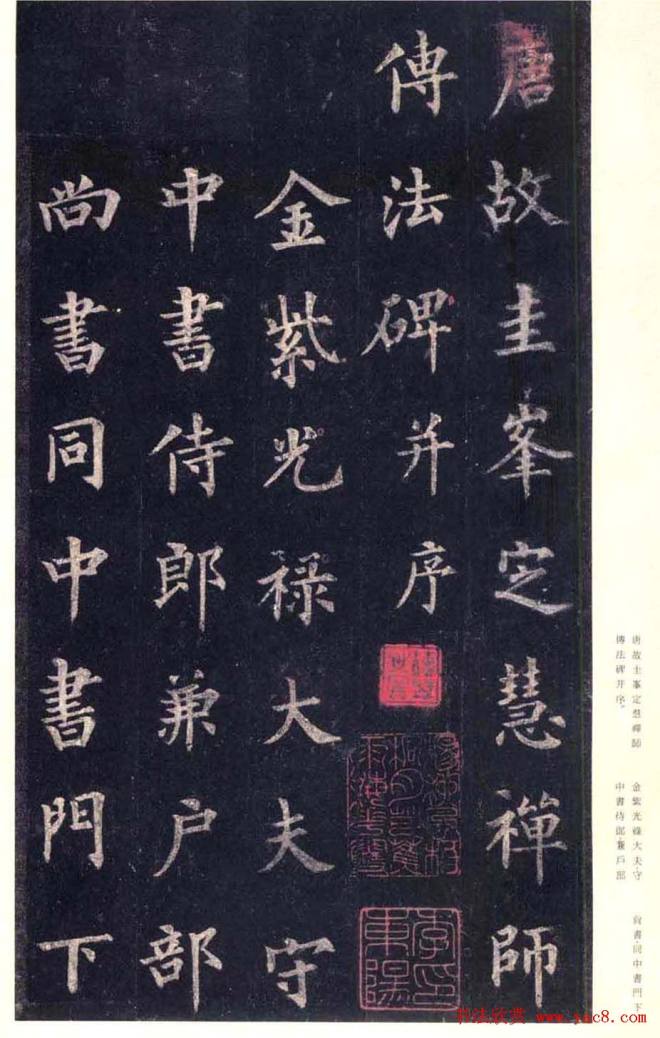 唐故圭峯定慧禪師
傳法碑并序
金紫光祿大夫守
中書侍郎兼户部
尚書同中書門下
唐故圭峯定慧禪師
傳法碑并序。
金紫光祿大夫·守
中書侍郎·兼戶部
尚書·同中書門下
书法欣赏 www.yac8.com